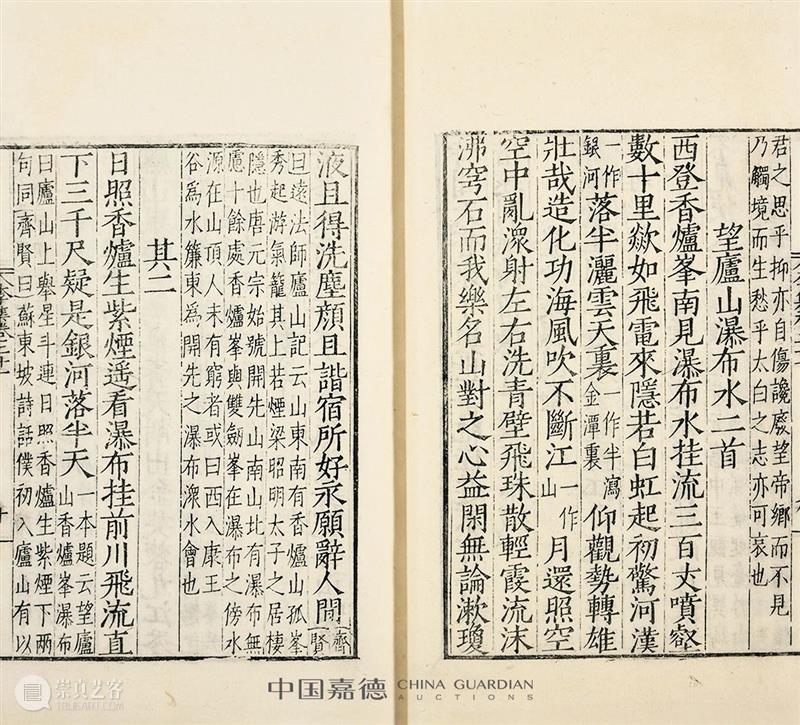 君之思乎抑亦自傷讒廢望帝鄉而不見
乃觸境而生愁乎太白之志亦可哀也
望廬山瀑布水二首
西登香爐峯南見瀑布水挂流三百丈噴壑
數十里歘如飛電來隱若白虹起初驚河漢
一作銀河落半灑雲天裏一作半瀉金潭裏仰觀勢轉雄
壯哉造化功海風吹不斷江一作山月還照空
空中亂潈射左右洗青壁飛珠散輕霞流沫
沸穹石而我樂名山對之心益閑無論漱瓊
液且得洗塵顏且諧宿所好永願辭人間齊賢
曰遠法師廬山記云山東南有香爐山孤峯
秀起游氣籠其上若煙梁昭明太子之居棲
隱也唐元宗始號開先山南山北有瀑布無
慮十餘處香爐峯與雙劔峯在瀑布之傍水
源在山頂人未有窮者或曰西入康王
谷爲水簾東爲開先之瀑布潈水會也
其二
日照香爐生紫煙遥看瀑布挂前川飛流直
下三千尺疑是銀河落半天一本題云望廬山香爐峯瀑布
曰廬山上舉星斗連日照香爐生紫煙下兩
句同齊賢曰蘇東坡詩話僕初入廬山有以
中国嘉德 CHINA GUARDIAN AUCTIONS
崇真艺客